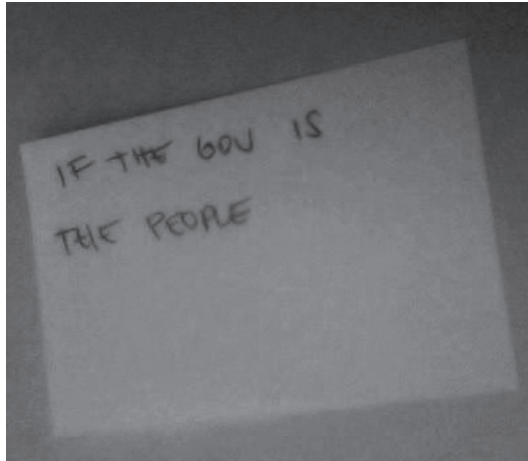 IF THE GOV IS
THE PEOPLE